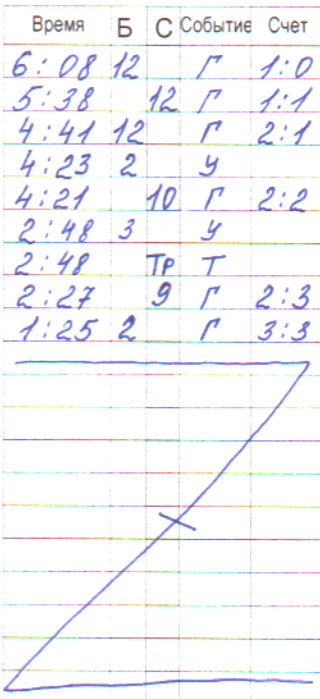 Время Б С Событие Счет
6:08 12 Г 1:0
5:38 12 Г 1:1
4:41 12 Г 2:1
4:23 2 У
4:21 10 Г 2:2
2:48 3 У
2:48 ТР Т
2:27 9 Г 2:3
1:25 2 Г 3:3